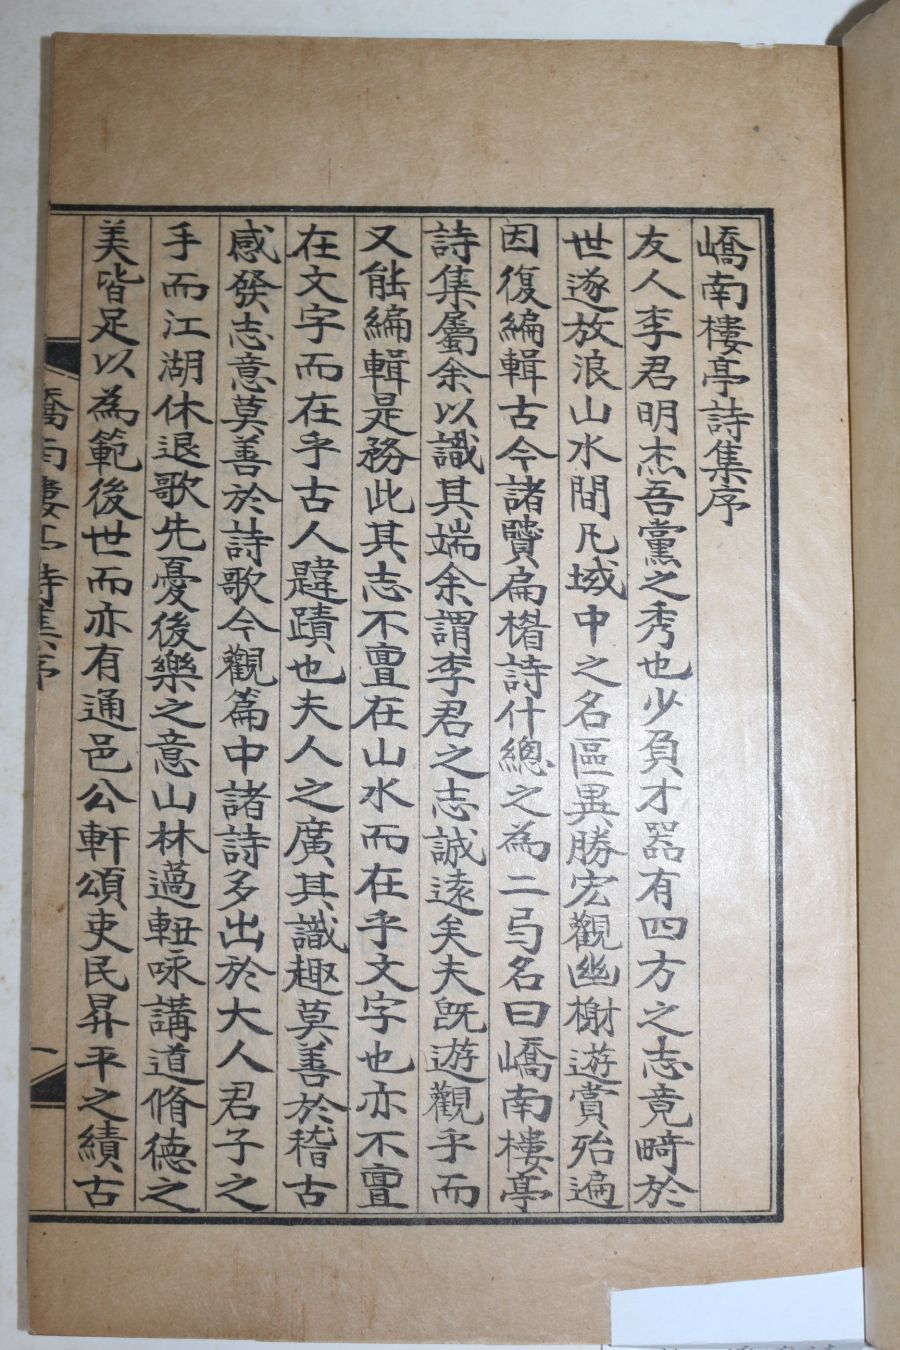 嶠南樓亭詩集序
友人李君明杰吾黨之秀也少負才器有四方之志竟畸於
世遂放浪山水間凡域中之名區異勝宏觀幽榭遊賞殆遍
因復編輯古今諸賢扁楣詩什總之為二弓名曰嶠南樓亭
詩集屬余以識其端余謂李君之志誠遠矣夫既遊觀乎而
又能編輯是務此其志不亶在山水而在乎文字也亦不亶
在文字而在乎古人韙蹟也夫人之廣其識趣莫善於稽古
感發志意莫善於詩歌今觀篇中諸詩多出於大人君子之
手而江湖休退歌先憂後樂之意山林薖軸咏講道脩德之
美皆足以為範後世而亦有通邑公軒頌吏民昇平之績古
嶠南樓亭詩集序 一